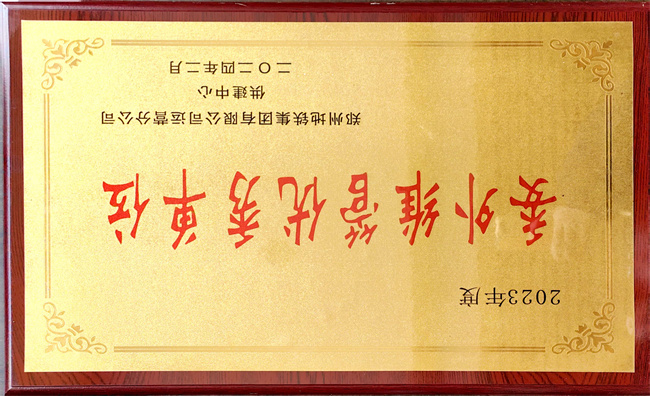 2023年度
委外维管优秀单位
郑州地铁集团有限公司运营分公司
供建中心
二〇二四年二月